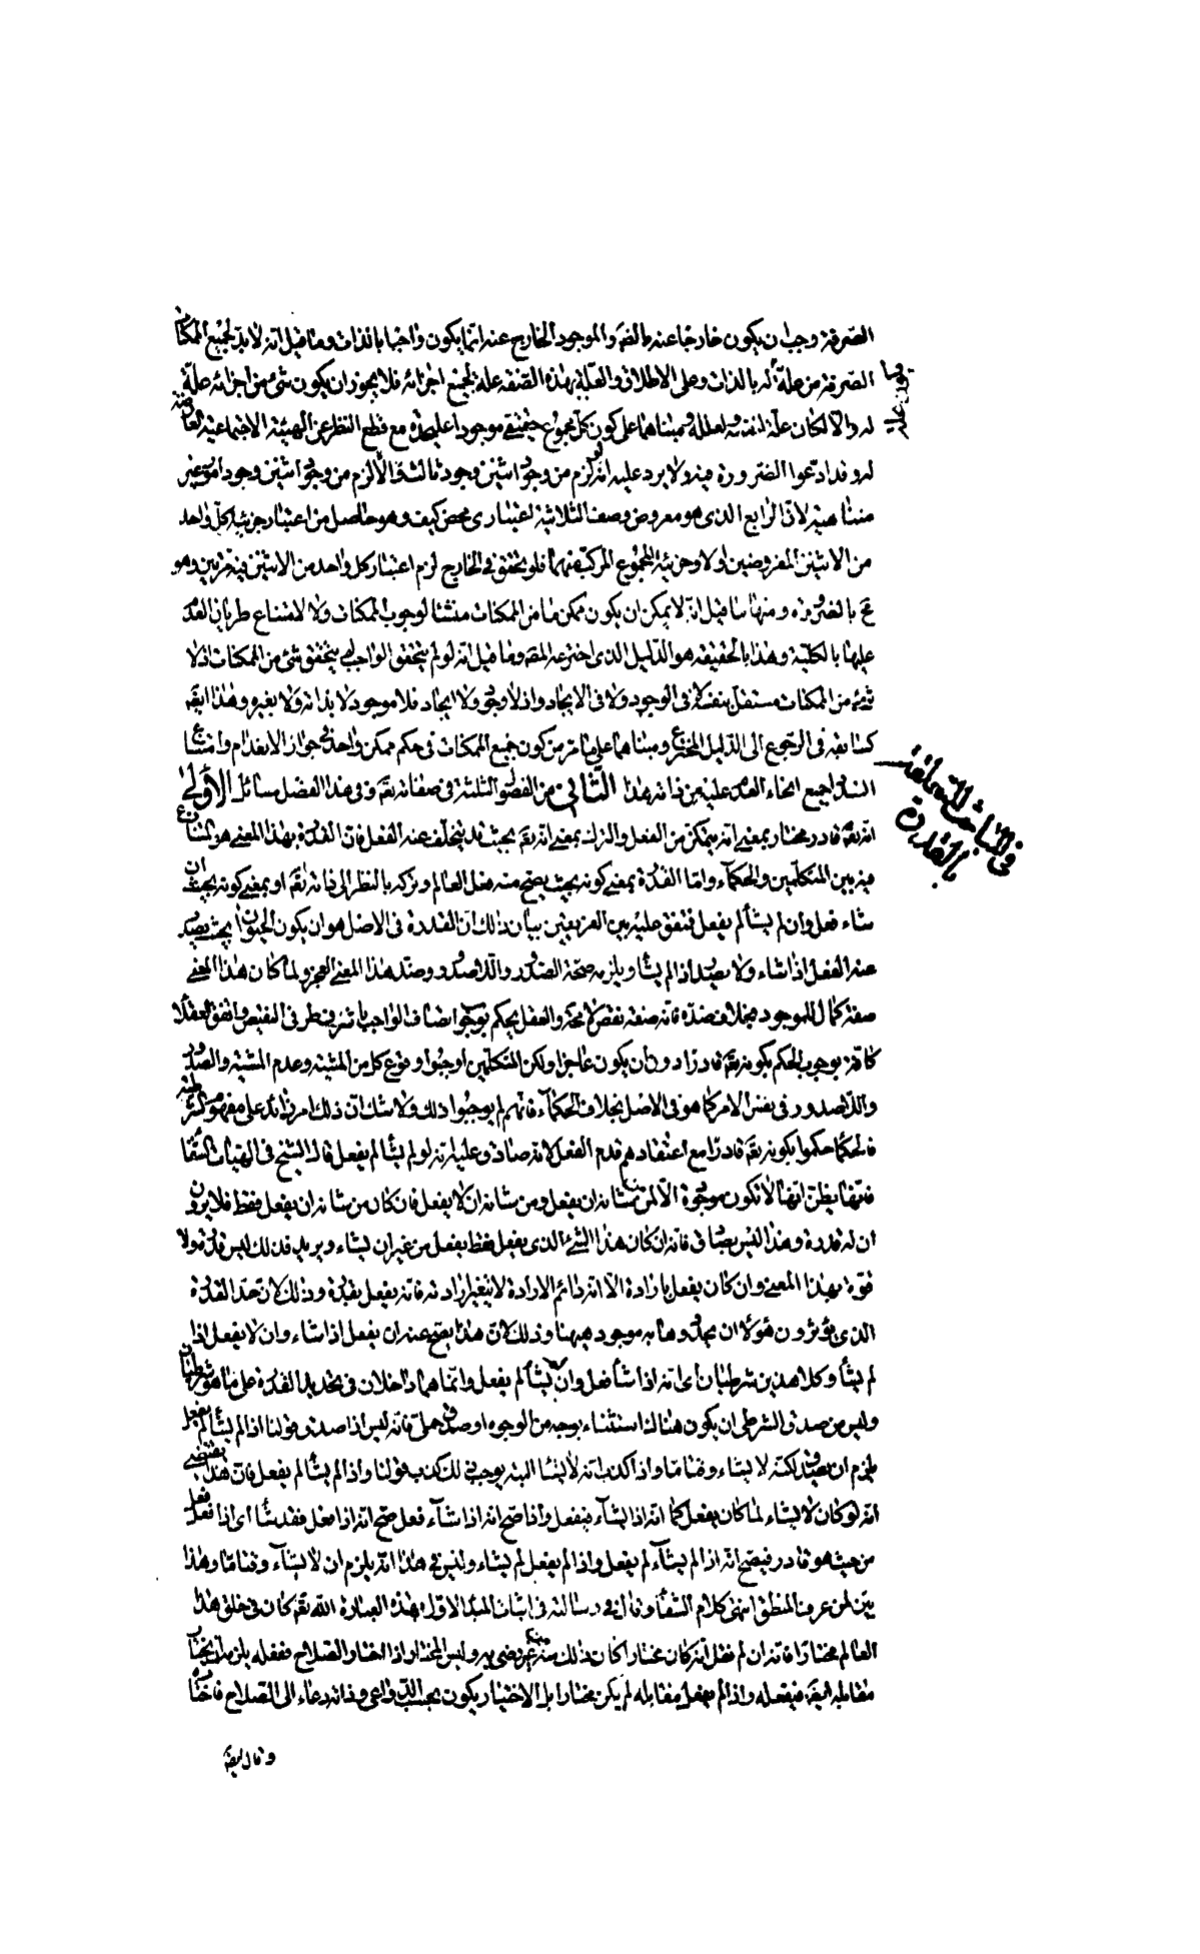 الصرفة وجب ان يكون خارجا عنه بالضم والموجود الخارج عنه انما يكون واجبا بالذات وما قيل انه لابد لجميع الممكنات
الصرفة من علة له بالذات وعلى الاطلاق والعلة بهذه الصفة علة لجميع اجزائه فلا يجوز ان يكون شئ من اجزائه علة
له والا لكان علة لنفسه ولعلله ومبناهما على كون كل مجموع حقيقى موجودا عليحدة مع قطع النظر عن الهيئة الاجتماعية العارضة
له وقد ادعوا الضرورة فيه ولا يرد عليه انه لو لزم من وجود اثنين وجود ثالث للزم من وجود اثنين وجود امور غير
متناهية لان الرابع الذى هو معروض وصف الثلاثية اعتبارى محض كيف وهو حاصل من اعتبار جزئية كل واحد
من الاثنين المفروضين اولا وجزئية المجموع المركب منهما فلو تحقق فى الخارج لزم اعتبار كل واحد من الاثنين فيه مرتين وهو
مح بالضرورة ومنها ما قيل انه لا يمكن ان يكون ممكن ما من الممكنات منشأ لوجوب الممكنات ولا لامتناع طريان العدم
عليها بالكلية وهذا بالحقيقة هو الدليل الذى اخترعه المص وما قيل انه لو لم يتحقق الواجب لم يتحقق شئ من الممكنات اذ لا
شئ من الممكنات مستقل بنفسه لا فى الوجود ولا فى الايجاد واذ لا وجود ولا ايجاد فلا موجود لا بذاته ولا بغيره وهذا ايضا
كسابقه فى الرجوع الى الدليل المخترع ومبناهما على ما مر من كون جميع الممكنات فى حكم ممكن واحد فى جواز الانعدام وامتناع
انحاء العدم عليه من ذاته هذا الثانى من الفصول الثلثة فى صفاته تع وفى هذا الفصل مسائل الاولى
انه تع قادر مختار بمعنى انه يتمكن من الفعل والترك بمعنى انه تع بحيث قد يتخلف عنه الفعل فان القدرة بهذا المعنى هو المتنازع
فيه بين المتكلمين والحكماء واما القدرة بمعنى كونه بحيث يصح منه فعل العالم وتركه بالنظر الى ذاته تع او بمعنى كونه بحيث ان
شاء فعل وان لم يشأ لم يفعل فمتفق عليه بين الفريقين بيان ذلك ان القدرة فى الاصل هو ان يكون الحيوان بحيث يصدر
عنه الفعل اذا شاء ولا يصدر اذا لم يشأ ويلزمه صحة الصدور واللاصدور وضد هذا المعنى العجز ولما كان هذا المعنى
صفة كمال للموجود بخلاف ضده فانه صفة نقص لا محة والعقل يحكم بوجوب اتصاف الواجب باشرف طرفى النقيض واتفق العقلاء
كافة بوجوب الحكم بكونه تع قادرا دون ان يكون عاجزا ولكن المتكلمين اوجبوا وقوع كل من المشية وعدم المشية والصدور
واللاصدور فى نفس الامر كما هو فى الاصل بخلاف الحكماء فانهم لم يوجبوا ذلك ولا شك ان ذلك امر زائد على مفهوم الشرطية
فالحكما حكموا بكونه تع قادرا مع اعتقادهم قدم الفعل لانه صادق عليه انه لو لم يشأ لم يفعل قال الشيخ فى الهيات الشفا
يظن انها لا تكون موجودة الا لمن من شانه ان يفعل ومن شانه ان لا يفعل فان كان من شانه ان يفعل فقط فلا يرون
ان له قدرة وهذا ليس بصادق فانه ان كان هذا الشئ الذى يفعل فقط يفعل من غير ان يشاء ويريد فذلك ليس قدرة ولا
قوة بهذا المعنى وان كان يفعل بارادة الا انه دائم الارادة لا يتغير ارادته فانه يفعل بقدرة وذلك لان حد القدرة
الذى يؤثرون هؤلاء ان يحدوها به موجود هيهنا وذلك لان هذا يصح عنه ان يفعل اذا شاء وان لا يفعل اذا
لم يشأ وكلا هذين شرطيان اى انه اذا شاء فعل وان لم يشأ لم يفعل وانما هما داخلان فى تحديد القدرة على ما هو شرطيان
وليس من صدق الشرطى ان يكون هناك استثناء بوجه من الوجوه او صدق حملى فانه ليس اذا صدق قولنا اذا لم يشأ لم يفعل
يلزم ان يصدق لكنه لا يشاء وقتا ما واذا كذب انه لا يشأ البتة يوجب ذلك كذب قولنا واذا لم يشأ لم يفعل فان هذا يقتضى
انه لو كان لا يشاء لما كان يفعل كما انه اذا يشآء فيفعل واذا صح انه اذا شآء فعل صح انه اذا فعل فقد شأ اى اذا فعل فعل
من حيث هو قادر فيصح انه اذا لم يشآء لم يفعل واذا لم يفعل لم يشاء وليس فى هذا انه يلزم ان لا يشآء وقتا ما وهذا
بين لمن عرف المنطق انتهى كلام الشفا وقال فى رسالته فى اثبات المبدا الاول بهذه العبارة الله تع كان فى خلق هذا
العالم مختارا فانه ان لم نقل انه كان مختارا كان ذلك منه من غير رضى به وليس المختار اذا اختار الصلاح ففعله يلزم ان يختار
مقابله ايضا فيفعله واذا لم يفعل مقابله لم يكن مختارا بل الاختيار يكون بحسب الدواعى وذاته دعاء الى الصلاح فاختار
وقال ايضا
فى المباحث المتعلقة
بالقدرة